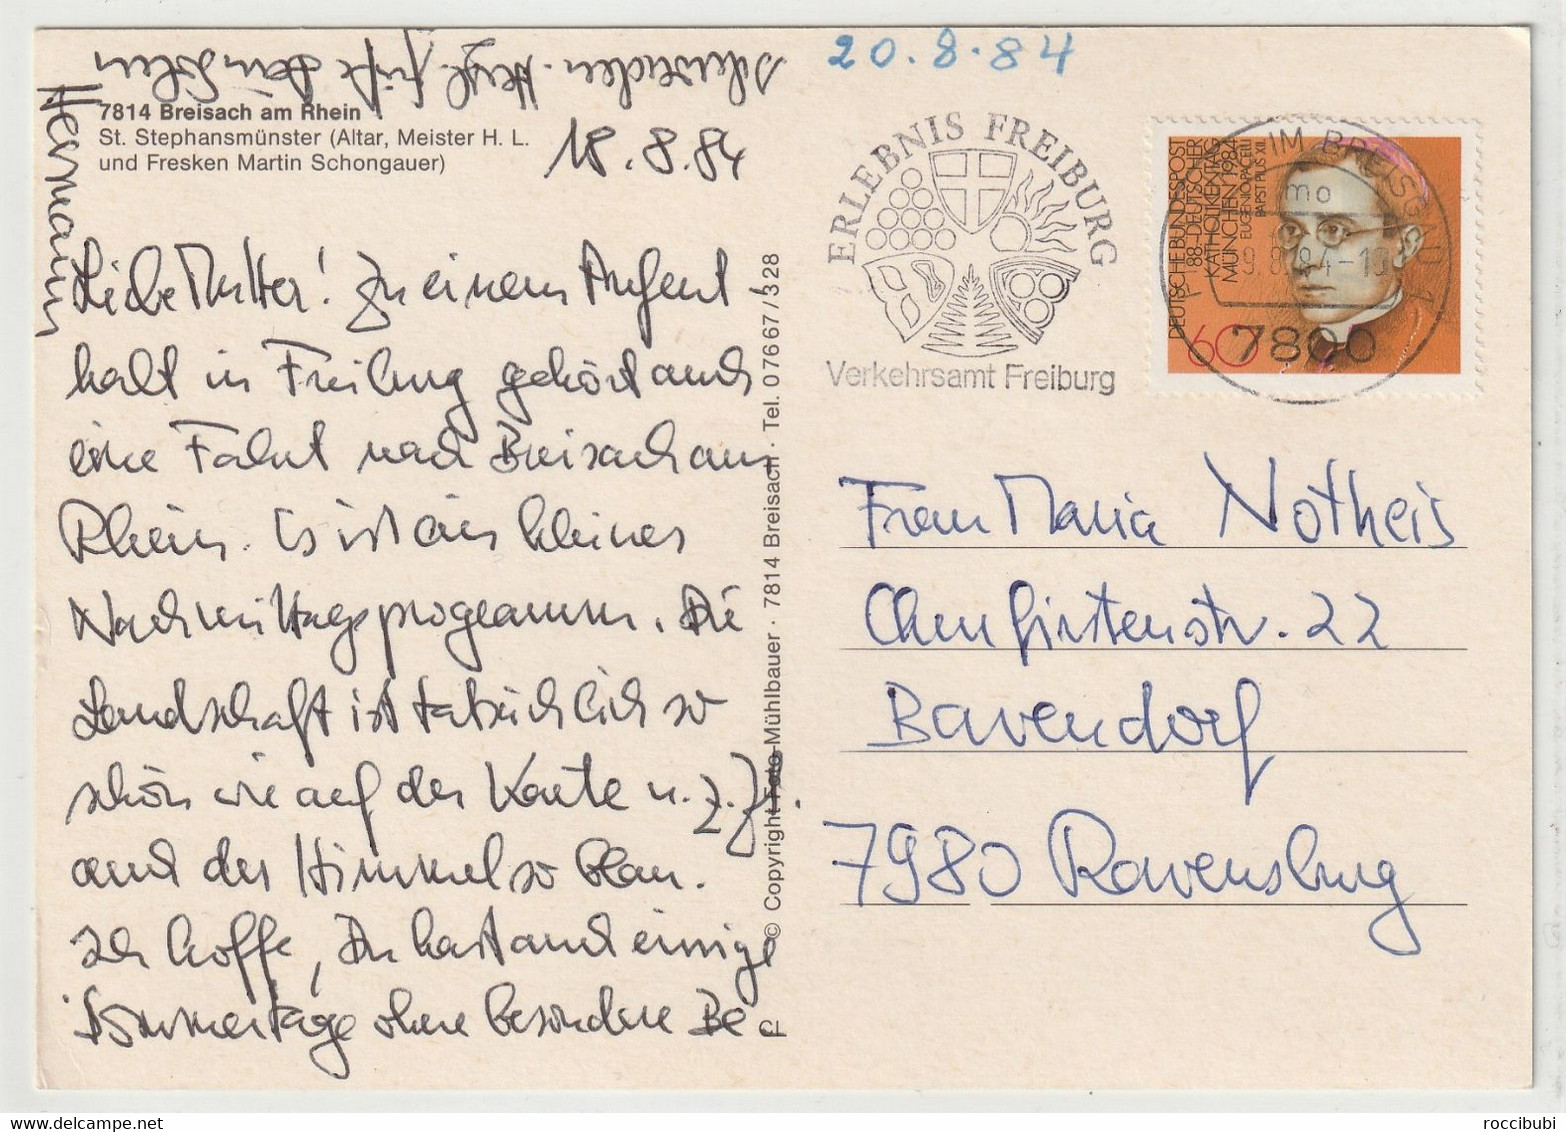 7814 Breisach am Rhein
St. Stephansmünster (Altar, Meister H. L.
und Fresken Martin Schongauer)
18.8.84
Liebe Mutter! Zu einem Aufent
halt in Freiburg gehört auch
eine Fahrt nach Breisach am
Rhein. Es ist ein kleines
Nachmittagsprogramm. Die
Landschaft ist tatsächlich so
schön wie auf der Karte u. z. Zt.
auch der Himmel so blau.
Ich hoffe, Du hast auch einige
Sommertage ohne besondere Be
schwerden. Herzl. Grüße Dein Sohn
Hermann
© Copyright Foto-Mühlbauer · 7814 Breisach · Tel. 07667/328
20.8.84
ERLEBNIS FREIBURG
Verkehrsamt Freiburg
DEUTSCHE BUNDESPOST
88. DEUTSCHER
KATHOLIKENTAG
MÜNCHEN 1984
EUGENIO PACELLI
PAPST PIUS XII.
60
IM BREISGAU 1
mo
7800
Frau Maria Notheis
Oberhirtenstr. 22
Bavendorf
7980 Ravensburg
roccibubi